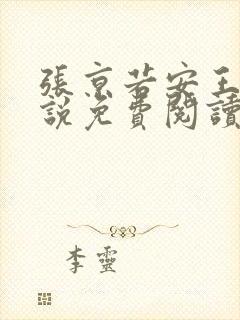 張京若安王
說免費閱讀
李靈